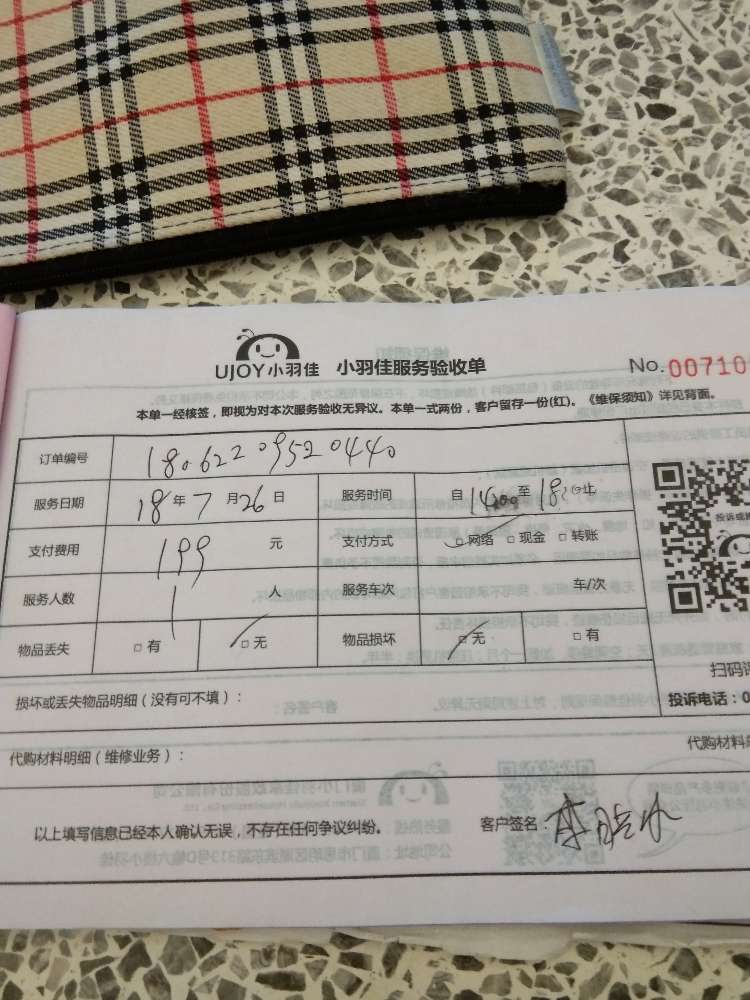 UJOY小羽佳 小羽佳服务验收单 No.00710
本单一经核签，即视为对本次服务验收无异议。本单一式两份，客户留存一份(红)。《维保须知》详见背面。
订单编号 18062209520440
服务日期 18年7月26日 服务时间 自14:00至18:00止
支付费用 199元 支付方式 □网络 □现金 □转账
服务人数 1人 服务车次 车/次
物品丢失 □有 □无 物品损坏 □无 □有
扫码
损坏或丢失物品明细（没有可不填）： 投诉电话：0
代购材料明细（维修业务）： 代购材料
以上填写信息已经本人确认无误，不存在任何争议纠纷。 客户签名：李